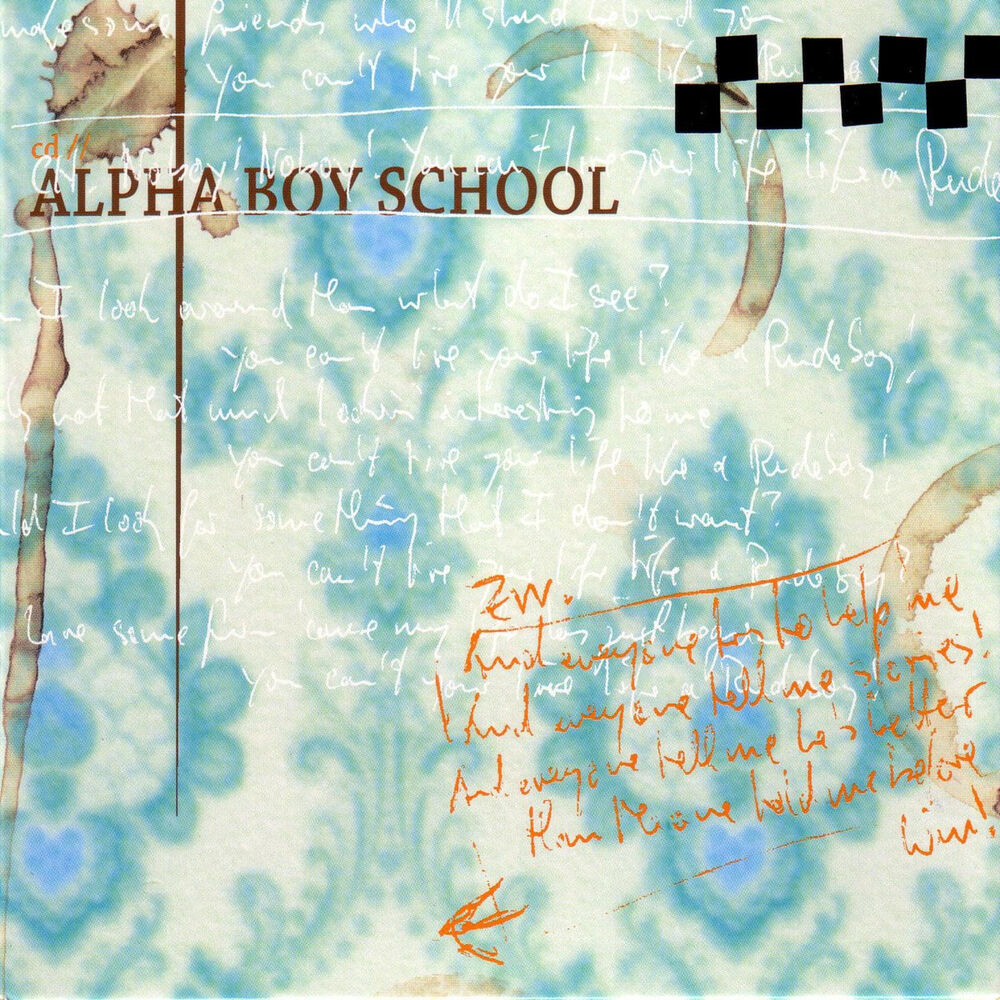 some friends who'll stand behind you
you can't live your life like a Rudeboy
cd //
Oh, Noboy! Noboy! You can't live your life like a Rude
ALPHA BOY SCHOOL
I look around then what do I see?
you can't live your life like a Rudeboy!
not that much lookin interesting to me
you can't live your life like a Rudeboy!
I look for something that I don't want?
you can't live your life like a Rudeboy?
some fun 'cause my has just begun
you can't your live like a Rudeboy
ZW.
And everyone has to help me
And everyone tell me stories!
And everyone tell me he's better
than the one told me before
him!